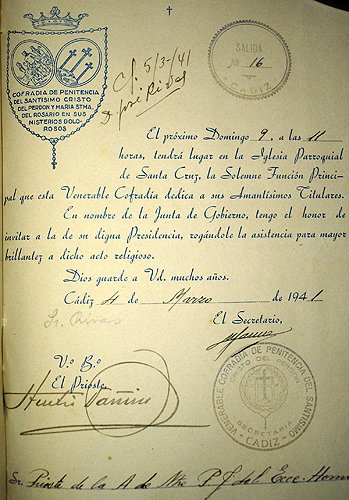 COFRADIA DE PENITENCIA
DEL SANTISIMO CRISTO
DEL PERDON Y MARIA STMA.
DEL ROSARIO EN SUS
MISTERIOS DOLO-
ROSOS
5/3/41
D. José Rivas
SALIDA
Nº 16
CADIZ
El próximo Domingo 9, a las 11
horas, tendrá lugar en la Iglesia Parroquial
de Santa Cruz, la Solemne Función Princi-
pal que esta Venerable Cofradía dedica a sus Amantísimos Titulares.
En nombre de la Junta de Gobierno, tengo el honor de
invitar a la de su digna Presidencia, rogándole la asistencia para mayor
brillantez a dicho acto religioso.
Dios guarde a Vd. muchos años.
Cádiz 4 de Marzo de 1941
Sr. Rivas
El Secretario,
V.º B.º
El Prioste
VENERABLE COFRADIA DE PENITENCIA DEL SANTISIMO
CRISTO DEL PERDON
SECRETARIA
CADIZ
Sr. Prioste de la A. de Ntro. P. J. del Ecce-Homo